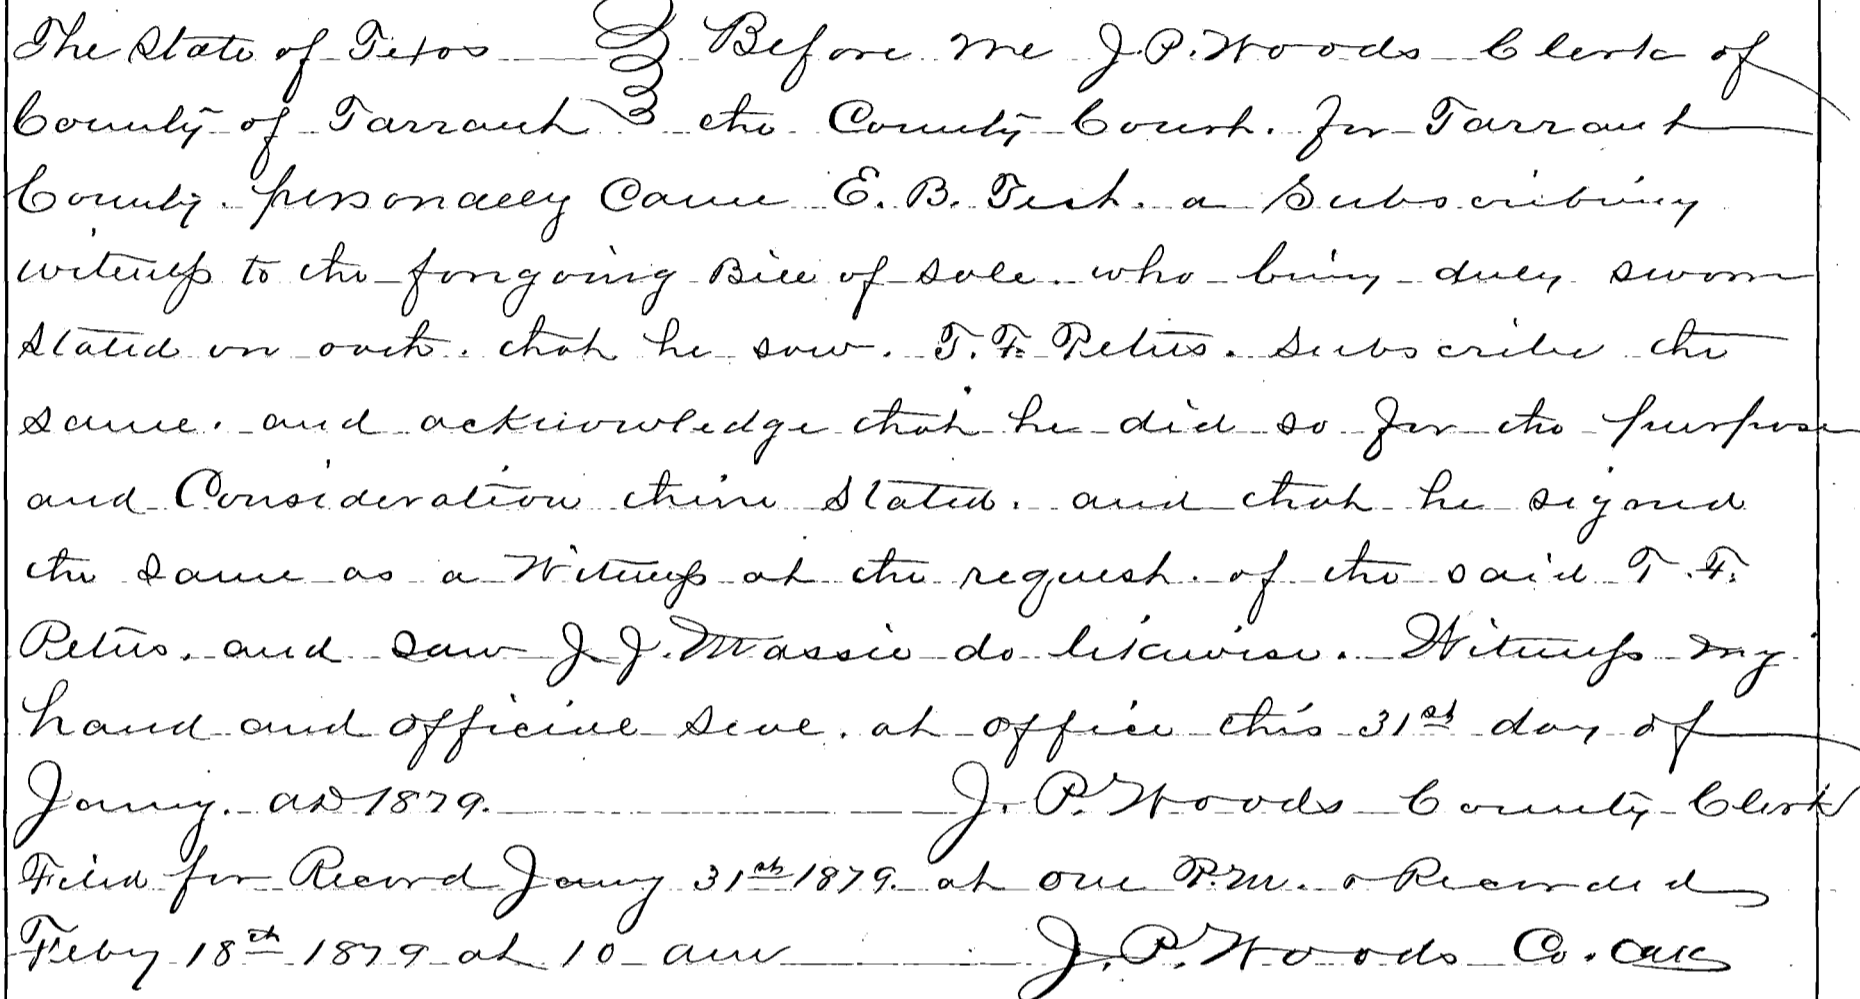 The State of Texas Before me J.P. Woods Clerk of
County of Tarrant the County Court. for Tarrant
County. personally came E. B. Test. a Subscribing
witness to the forgoing Bill of Sale. who being duly sworn
stated on oath. that he saw. T. F. Petus. subscribe the
same. and acknowledge that he did so for the purpose
and Consideration therein stated. and that he signed
the same as a Witness at the request. of the said T. F.
Petus. and saw J. J. Massie do likewise. Witness my
hand and official seal. at office this 31st day of
Jany. AD 1879. J. P. Woods County Clerk
Filed for Record Jany 31st 1879. at one P.M. & Recorded
Feby 18th 1879 at 10 am J. P. Woods Co. Clk